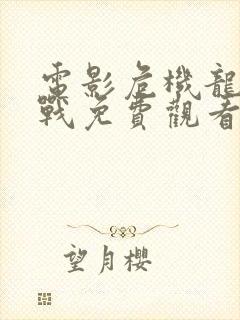 電影危機龍
戰免費觀看
望月櫻